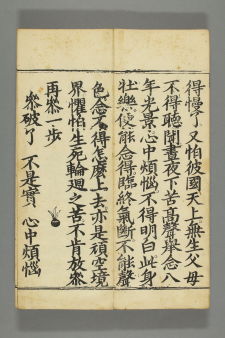 得慢了又怕彼國天上無生父母
不得聽聞晝夜下苦高聲舉念八
年光景心中煩惱不得明白此身
壯樂便能念得臨終氣斷不能聲
色念不得怎麼上去亦是頑空境
界懼怕生死輪迴之苦不肯放參
再參一步
參破了 不是實 心中煩惱